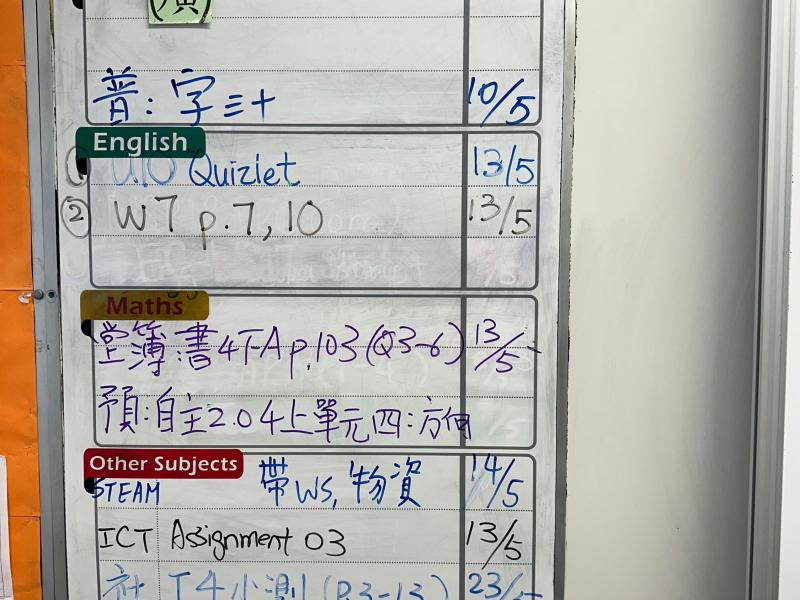 普：字三十 10/5
English
① U.10 Quizlet 13/5
② W7 p.7, 10 13/5
Maths
堂簿書4下A p.103 (Q3-6) 13/5
預：自主2.0 4上單元四：方向
Other Subjects
STEAM 帶WS, 物資 14/5
ICT Assignment 03 13/5
社 T4小測 (P.3-13) 23/5